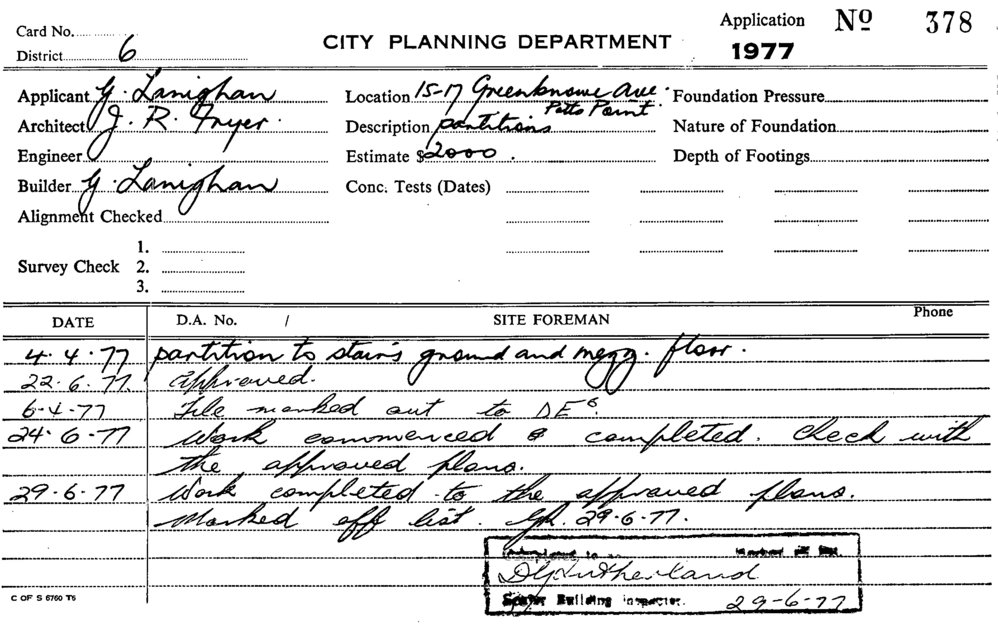 Card No.
District 6
CITY PLANNING DEPARTMENT
Application Nº 378
1977
Applicant G. Lanighan
Architect J. R. Fryer.
Engineer
Builder G. Lanighan
Alignment Checked
Survey Check 1.
2.
3.
Location 15-17 Greenknowe Ave.
Potts Point
Description partitions
Estimate $2000.
Conc. Tests (Dates)
Foundation Pressure
Nature of Foundation
Depth of Footings
DATE D.A. No. / SITE FOREMAN Phone
4.4.77 partition to stairs ground and mezz. floor.
22.6.77. approved.
6-4-77 File marked out to DE6.
24.6.77 Work commenced & completed. Check with
the approved plans.
29.6.77 Work completed to the approved plans.
Marked off list. 29.6.77.
Marked off
Sutherland
Senior Building Inspector. 29-6-77
C OF S 6760 T5